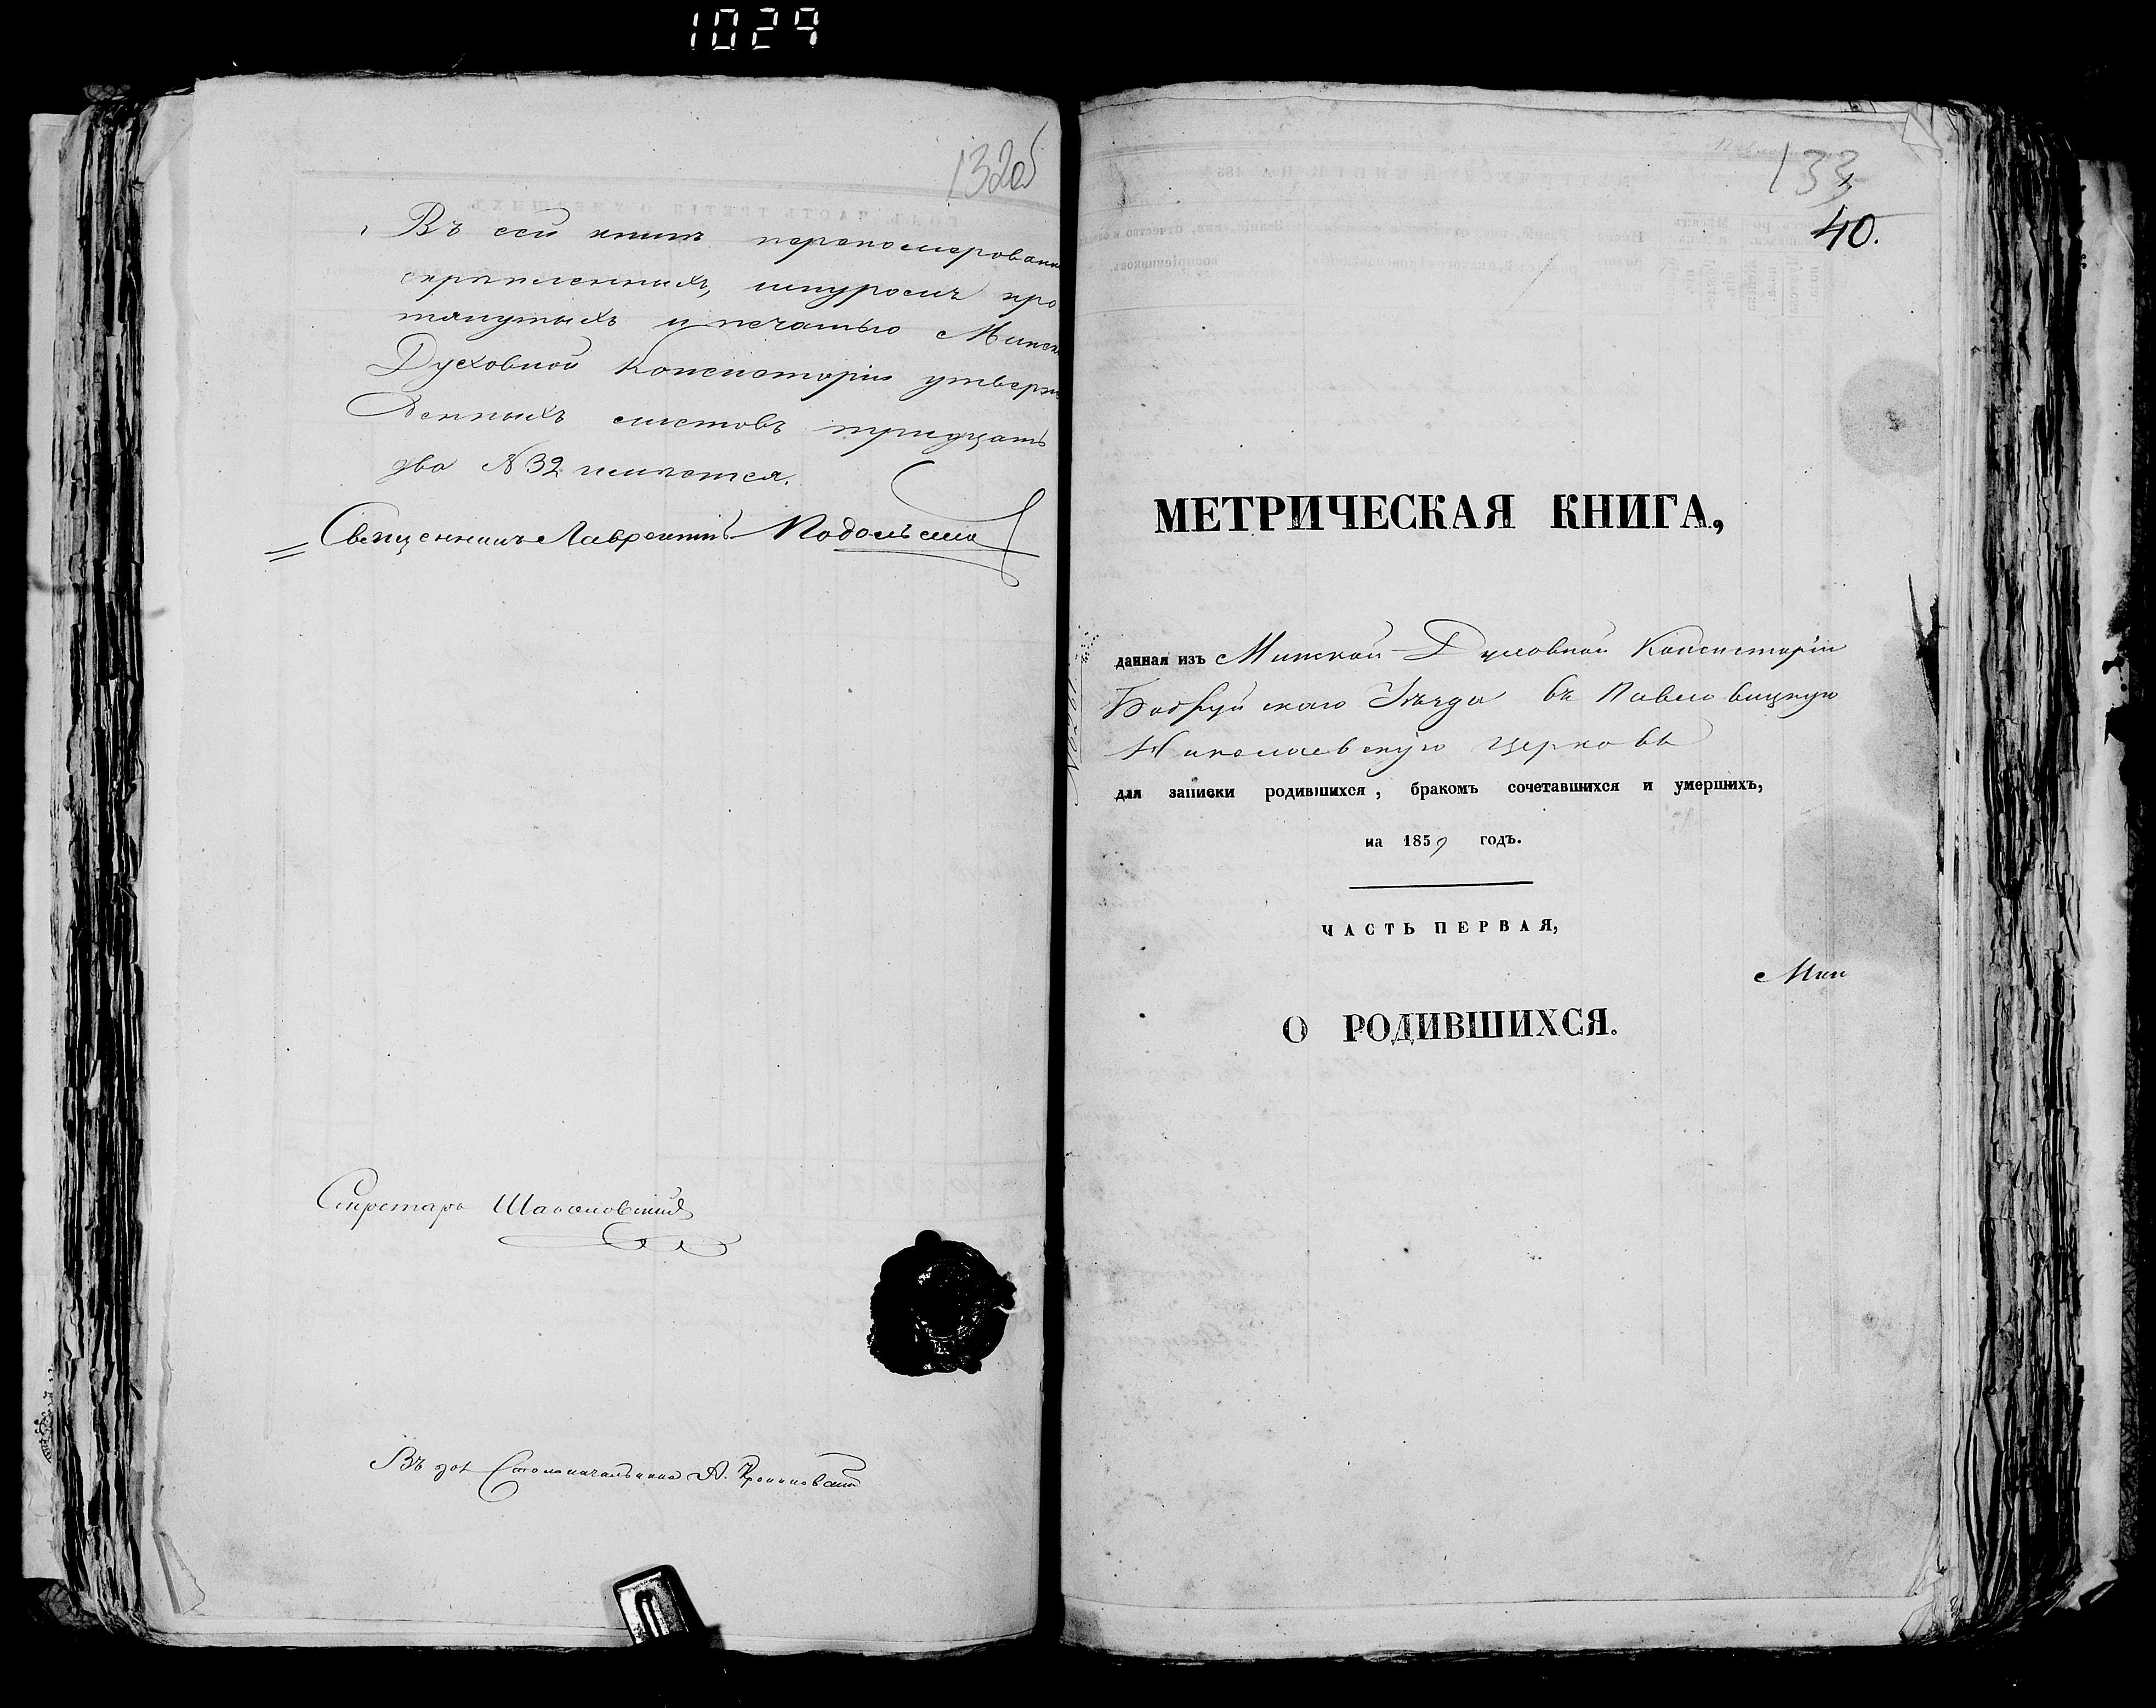 1029
132об
Въ сей книгѣ перенумерованн
скрѣпленныхъ, шнуромъ про
тянутыхъ и печатью Минск
Духовной Консисторіи утверж
денныхъ листовъ тридцать
два №32 имѣется.
Священникъ Лаврентій Подольскій
Секретарь
Въ дол Столоначальника А.
133
40.
МЕТРИЧЕСКАЯ КНИГА,
данная изъ Минской Духовной Консисторіи
Бобруйскаго Уѣзда въ Павловицкую
Николаевскую церковь
для записки родившихся, бракомъ сочетавшихся и умершихъ,
на 1859 годъ.
ЧАСТЬ ПЕРВАЯ,
Мин
О РОДИВШИХСЯ.